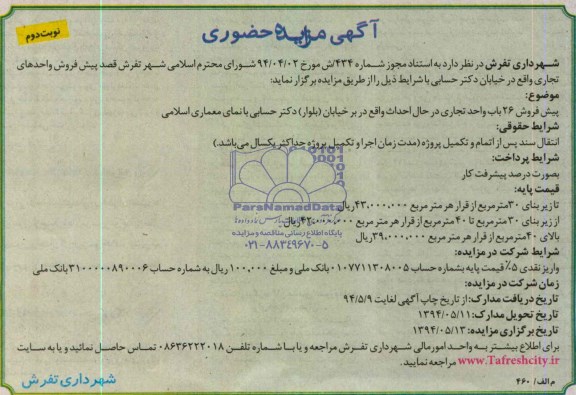 آگهی مزایده حضوری
نوبت دوم
شهرداری تفرش در نظر دارد به استناد مجوز شماره ۴۳۴/ش مورخ ۹۴/۰۴/۰۲ شورای محترم اسلامی شهر تفرش قصد پیش فروش واحدهای
تجاری واقع در خیابان دکتر حسابی با شرایط ذیل را از طریق مزایده برگزار نماید:
موضوع:
پیش فروش ۲۶ باب واحد تجاری در حال احداث واقع در بر خیابان (بلوار) دکتر حسابی با نمای معماری اسلامی
شرایط حقوقی:
انتقال سند پس از اتمام و تکمیل پروژه (مدت زمان اجرا و تکمیل پروژه حداکثر یکسال می‌باشد.)
شرایط پرداخت:
بصورت درصد پیشرفت کار
قیمت پایه:
تا زیر بنای ۳۰ مترمربع از قرار هر متر مربع ۴۳،۰۰۰،۰۰۰ ریال
از زیر بنای ۳۰ مترمربع تا ۴۰ مترمربع از قرار هر متر مربع ۴۲،۰۰۰،۰۰۰ ریال
بالای ۴۰ مترمربع از قرار هر متر مربع ۳۹،۰۰۰،۰۰۰ ریال
شرایط شرکت در مزایده:
واریز نقدی ۵٪ قیمت پایه بشماره حساب ۰۱۰۷۷۱۱۳۰۸۰۰۵ بانک ملی و مبلغ ۱۰۰،۰۰۰ ریال به شماره حساب ۳۱۰۰۰۰۰۸۹۰۰۰۶ بانک ملی
زمان شرکت در مزایده:
تاریخ دریافت مدارک: از تاریخ چاپ آگهی لغایت ۹۴/۵/۹
تاریخ تحویل مدارک: ۱۳۹۴/۰۵/۱۱
تاریخ برگزاری مزایده: ۱۳۹۴/۰۵/۱۳
برای اطلاع بیشتر به واحد امور مالی شهرداری تفرش مراجعه و یا با شماره تلفن ۰۸۶۳۶۲۲۲۰۱۸ تماس حاصل نمائید و یا به سایت
www.Tafreshcity.ir مراجعه نمایید.
م الف/ ۴۶۰
شهرداری تفرش
ParsNamadData
پایگاه اطلاع رسانی مناقصه و مزایده
۰۲۱-۸۸۳۴۹۶۷۰-۵